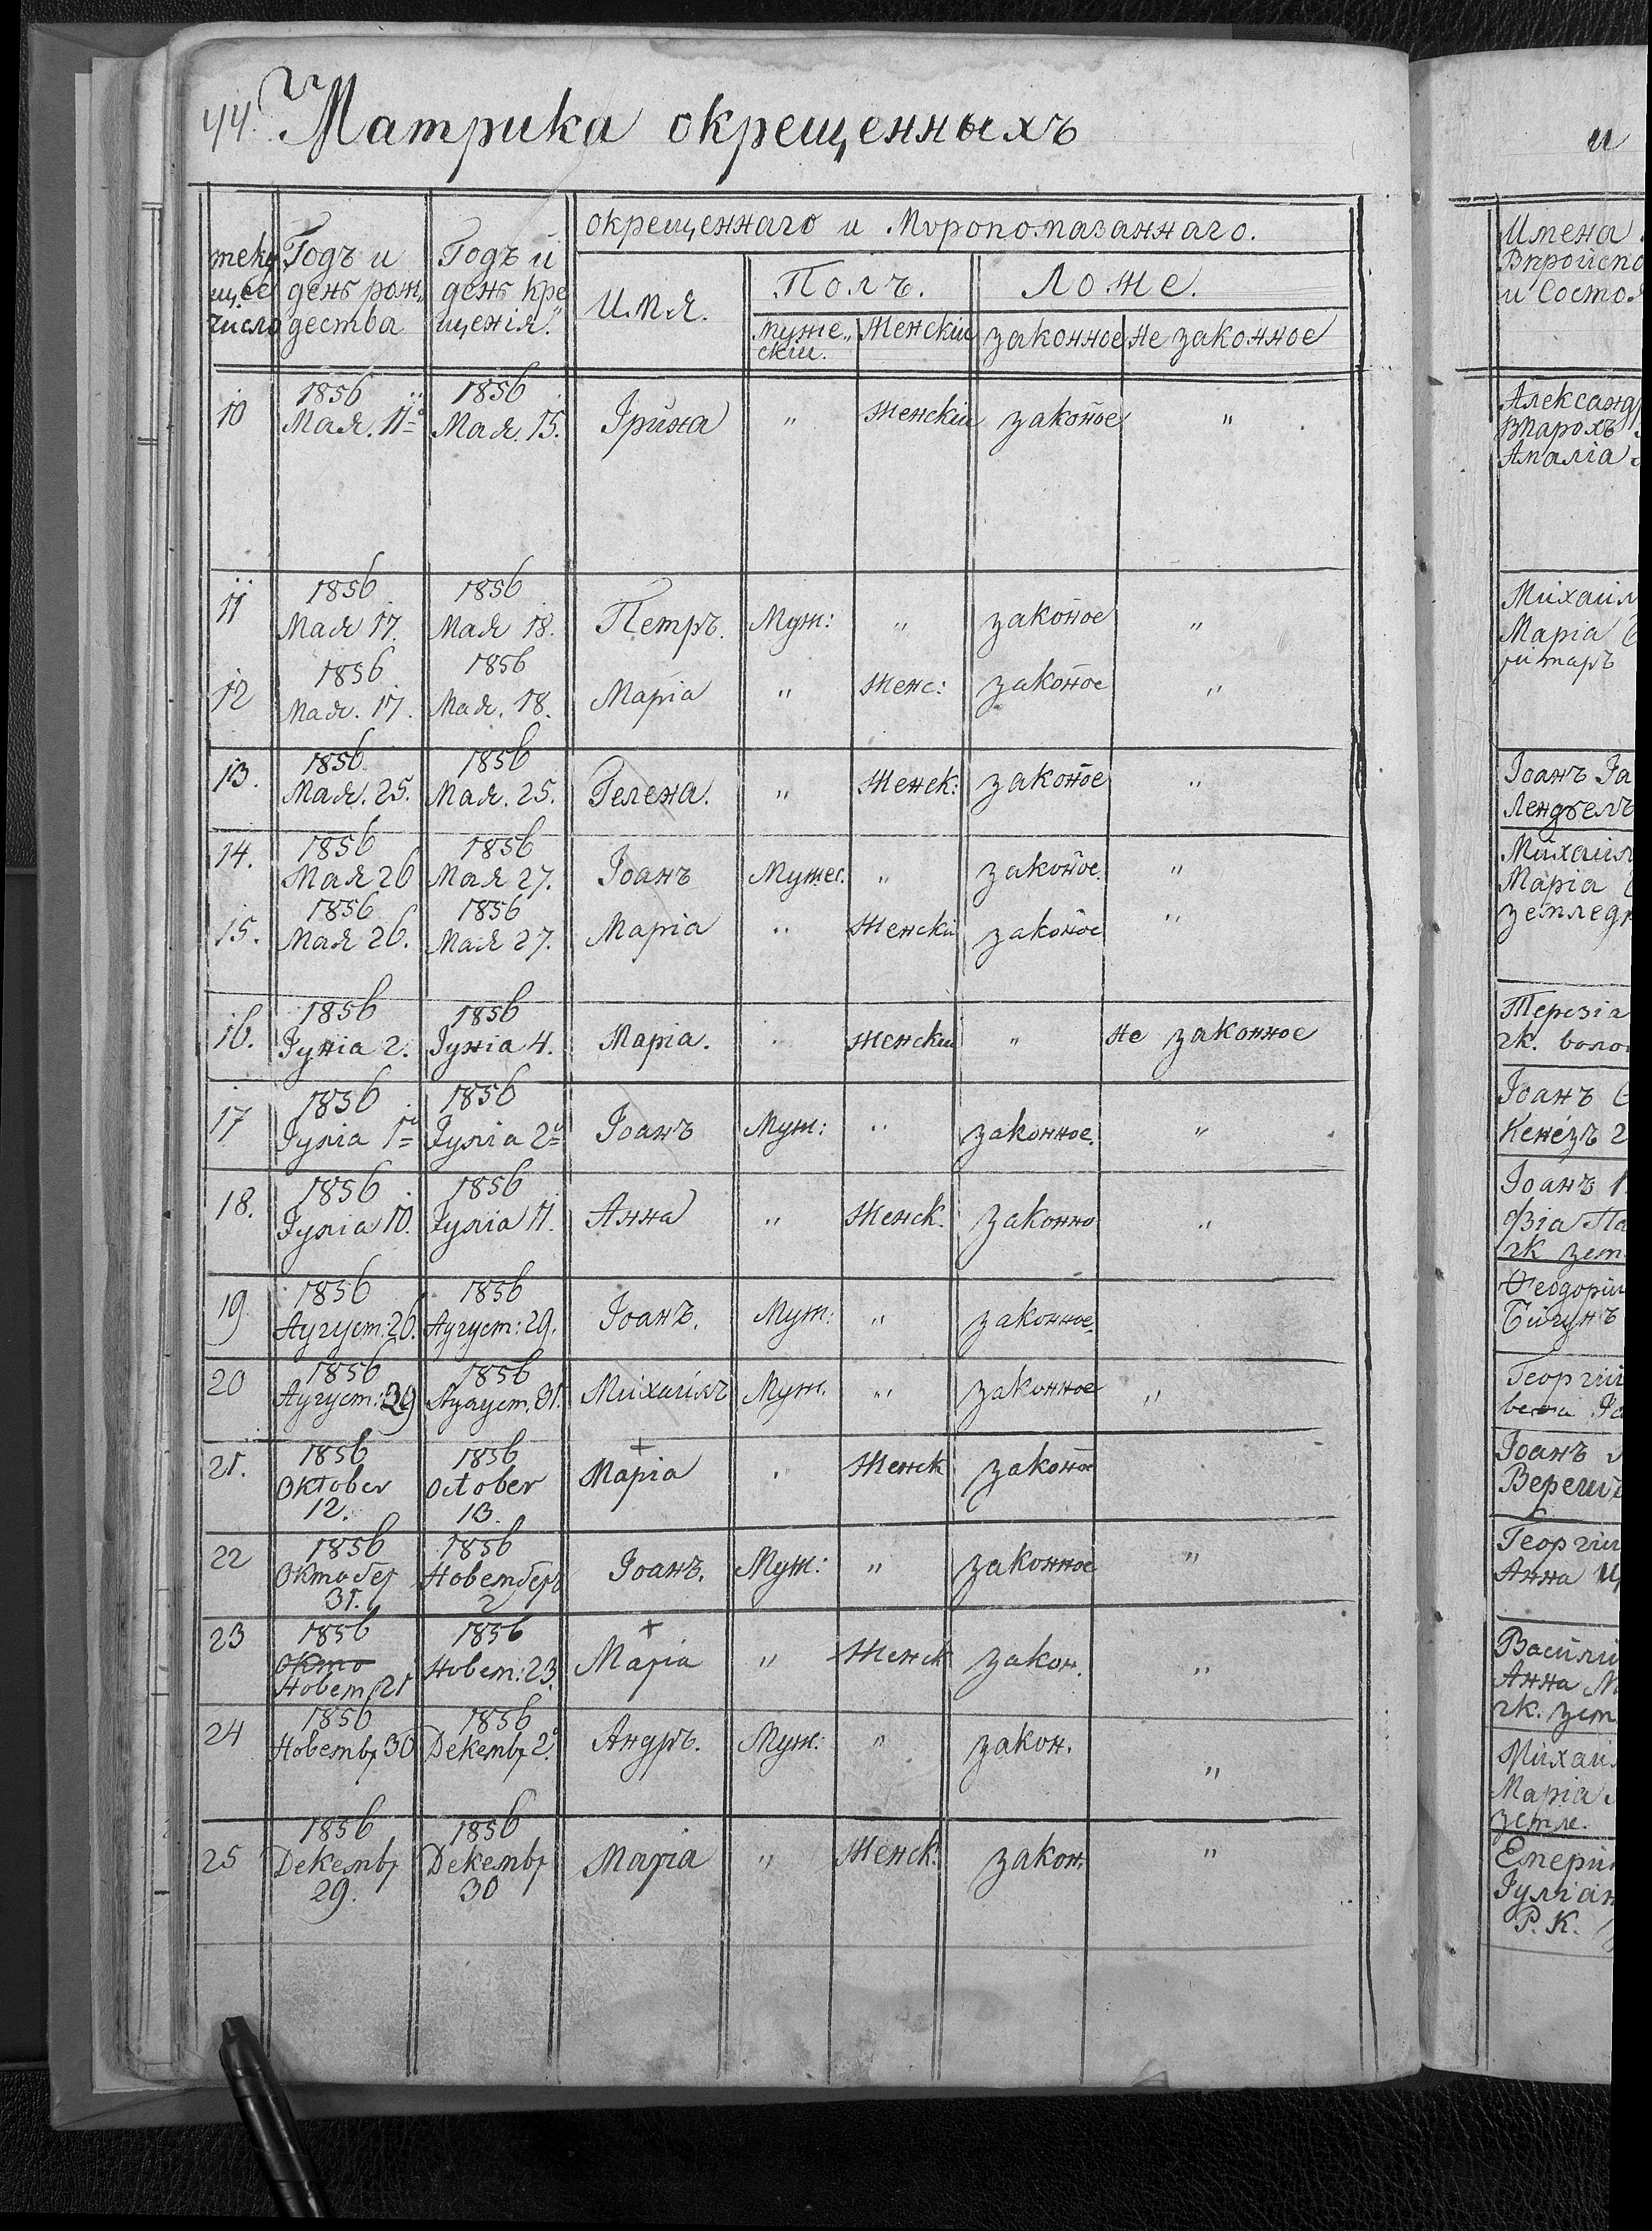 44. Матрика окрещенныхъ
окрещеннаго и Мѵропомазаннаго.
теку
щее
число
Годъ и
день рож„
дества
Годъ и
день кре„
щенія.
Имя.
Полъ.
Ложе.
муже„
скіи.
Женскіи
законное
не законное
10
1856
Мая. 11.
1856
Мая. 15.
Ірина
„
Женскіи
законое
„
11
1856
Мая 17.
1856
Мая 18.
Петръ.
Муж:
„
законое
„
12
1856
Мая. 17.
1856
Мая. 18.
Маріа
„
Женс:
законое
„
13.
1856
Мая. 25.
1856
Мая. 25.
Гелена.
„
Женск:
законое
„
14.
1856
Мая 26
1856
Мая 27.
Іоанъ
Мужес.
„
законое.
„
15.
1856
Мая 26.
1856
Мая 27.
Маріа
„
Женскіи
законое
„
16.
1856
Іуніа 2.
1856
Іуніа 4.
Маріа.
„
Женскіи
„
не законное
17
1856
Іуліа 1а
1856
Іуліа 2а
Іоанъ
Муж:
„
законное.
„
18.
1856
Іуліа 10.
1856
Іуліа 11.
Анна
„
Женск.
законно
„
19.
1856
Аугуст: 26.
1856
Аугуст: 29.
Іоанъ.
Муж:
„
законное.
20
1856
Аугуст: 29
1856
Аугуст. 31.
Михаилъ
Муж.
„
законное
„
21.
1856
Oktober
12.
1856
October
13.
+
Маріа
„
Женск
законое
22
1856
Октобер
31.
1856
Новембер
2
Іоанъ.
Муж:
„
законное
„
23
1856
Окто
Новем 21
1856
Новем: 23.
+
Маріа
„
Женск
закон.
„
24
1856
Новембр 30
1856
Декембр 2.
Андръ.
Муж:
„
закон.
„
25
1856
Декембр
29.
1856
Декембр
30
Маріа
„
Женск:
закон.
„
и
Имена
и Состоя
Александр
Амаліа
Михаил
Маріа
Іоанъ
Михаил
Маріа
Терезіа
гк.
Іоанъ
Кенезъ
Іоанъ
гк зем
Феодоріи
Бигунъ
Георгіи
Іоанъ
Георгіи
Анна
Василіи
Анна
гк. зем
Михаи
Маріа
земле.
Емери
Іуліан
Р. К.